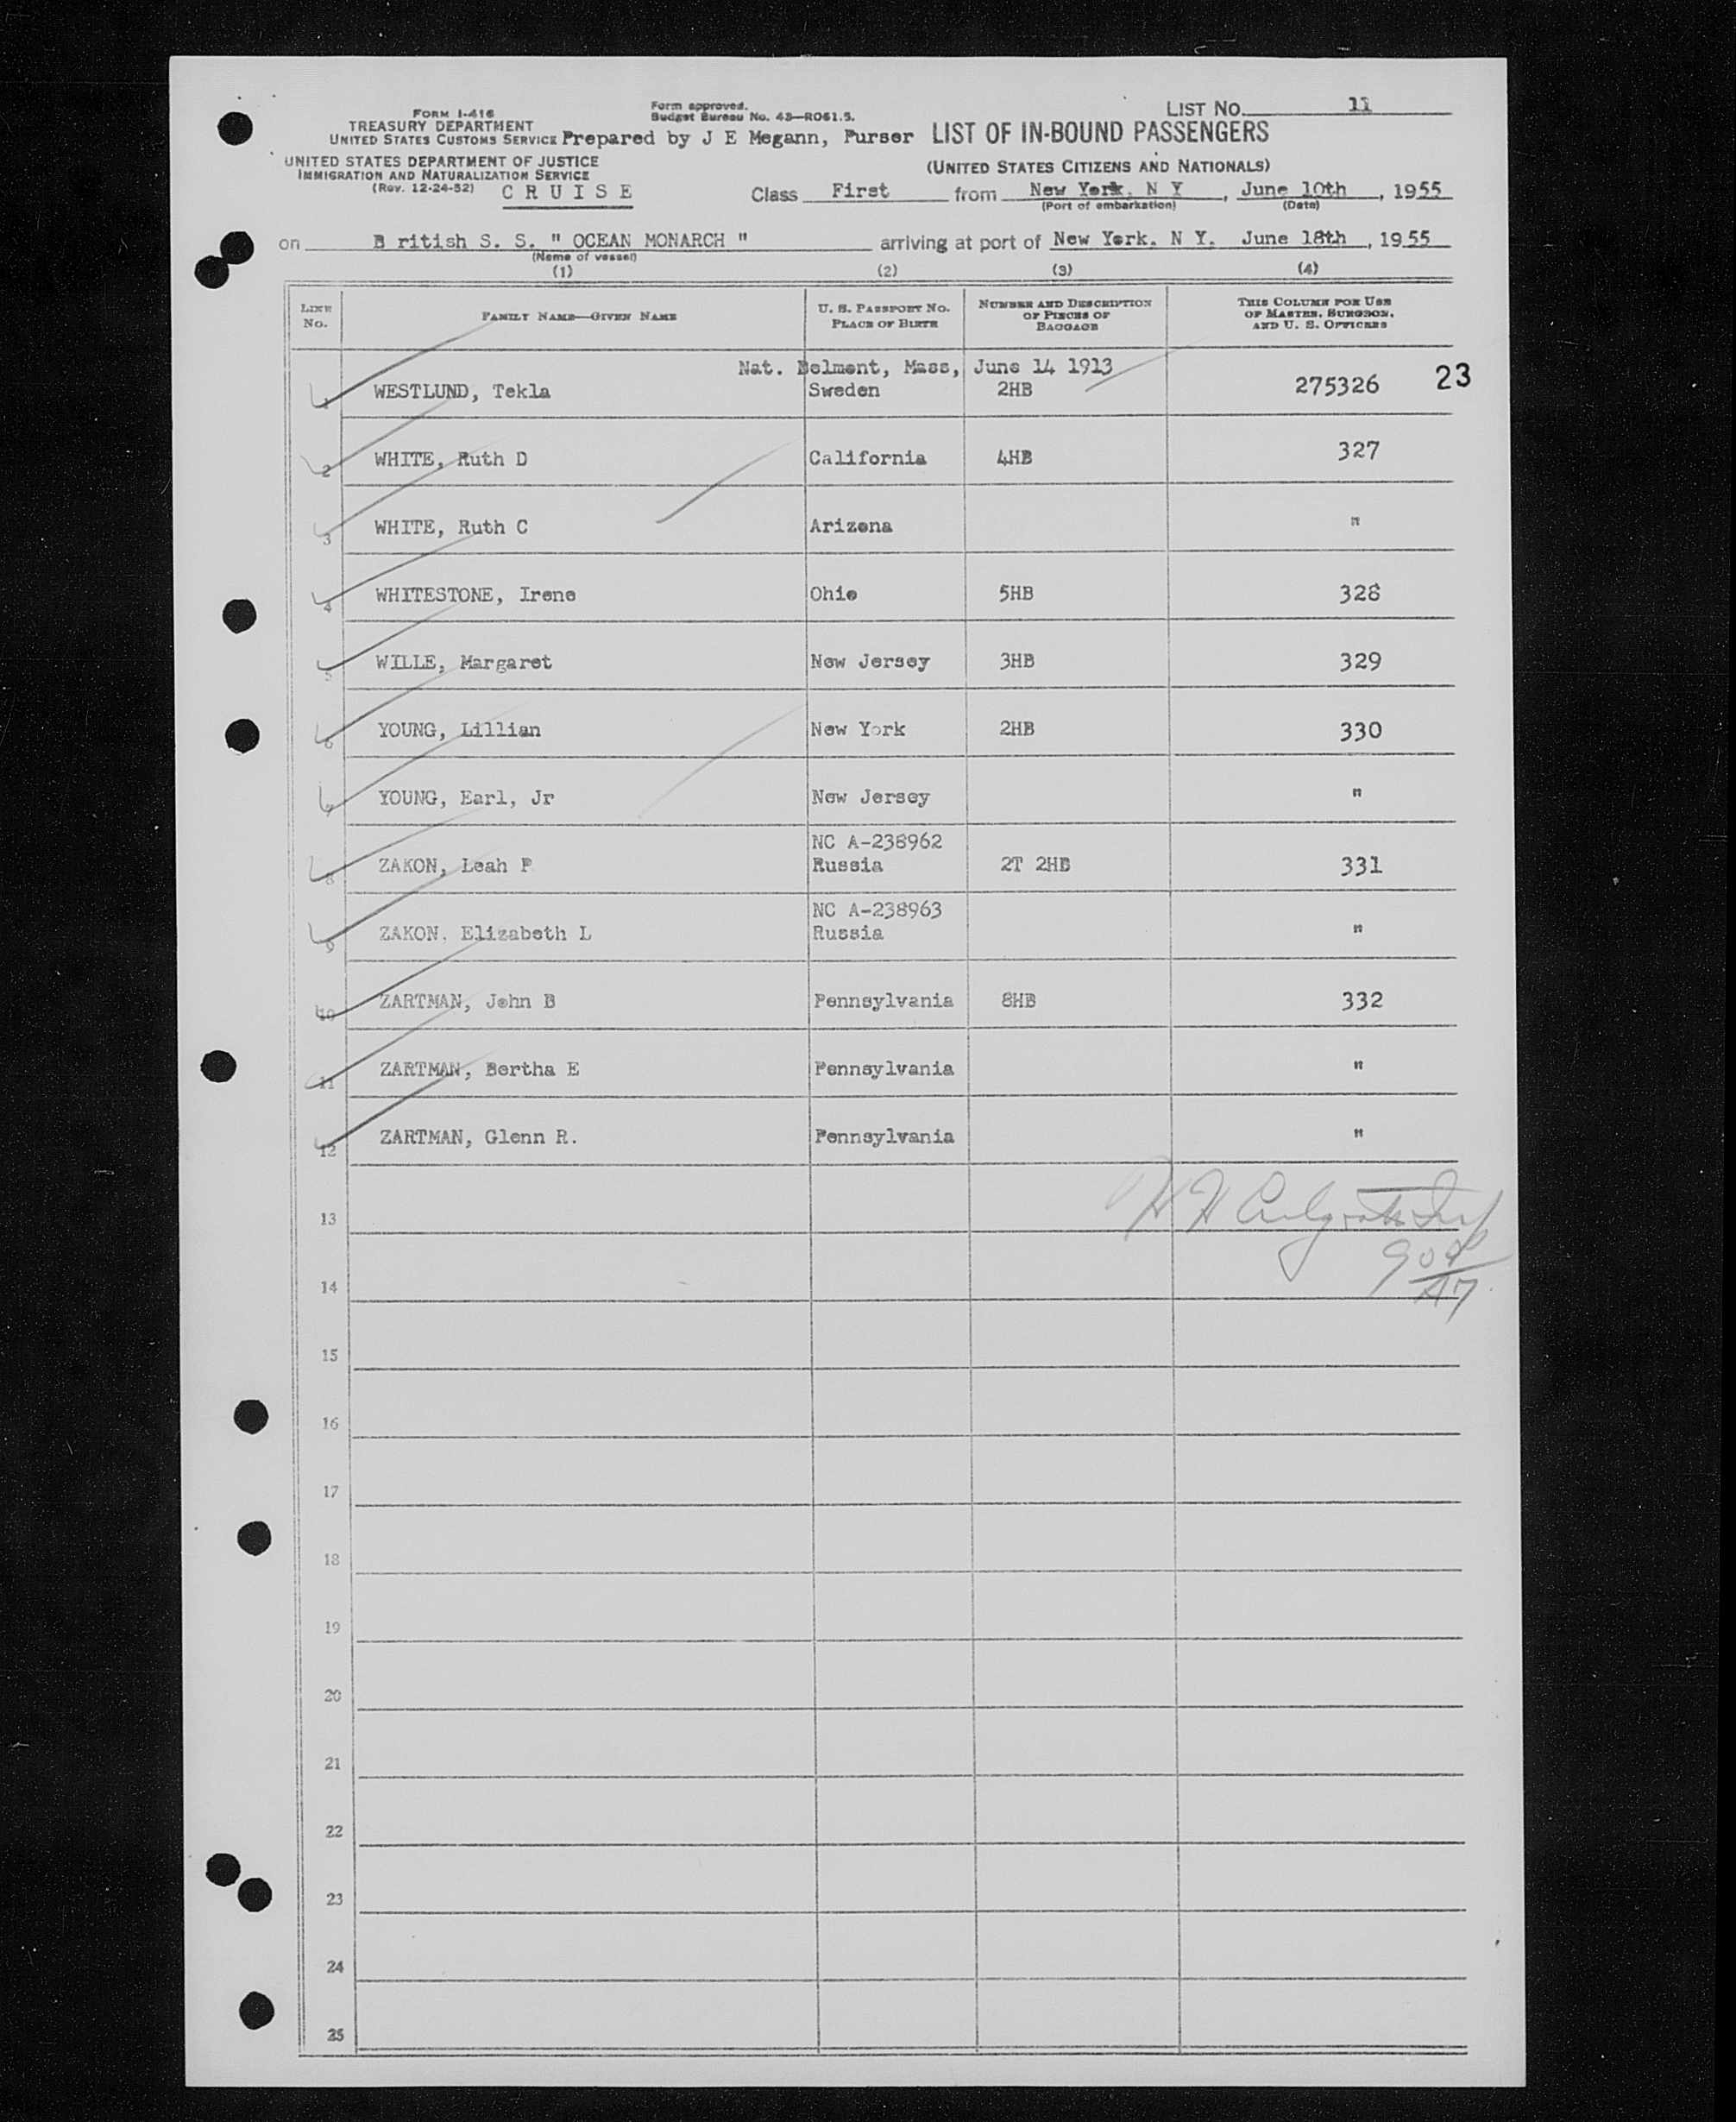 LIST No. 11
FORM I-416
TREASURY DEPARTMENT
UNITED STATES CUSTOMS SERVICE
Form approved.
Budget Bureau No. 43—RO61.5.
Prepared by J E Megann, Purser
LIST OF IN-BOUND PASSENGERS
UNITED STATES DEPARTMENT OF JUSTICE
IMMIGRATION AND NATURALIZATION SERVICE
(Rev. 12-24-52)
(UNITED STATES CITIZENS AND NATIONALS)
C R U I S E
Class First from New York, N Y, June 10th, 1955
(Port of embarkation) (Date)
on B ritish S. S. " OCEAN MONARCH " arriving at port of New York, N Y, June 18th, 1955
(Name of vessel)
(1) (2) (3) (4)
LINE No. FAMILY NAME—GIVEN NAME U. S. PASSPORT NO. PLACE OF BIRTH NUMBER AND DESCRIPTION OF PIECES OF BAGGAGE THIS COLUMN FOR USE OF MASTER, SURGEON, AND U. S. OFFICERS
Nat. Belmont, Mass, June 14 1913
1 WESTLUND, Tekla Sweden 2HB 275326 23
2 WHITE, Ruth D California 4HB 327
3 WHITE, Ruth C Arizona "
4 WHITESTONE, Irene Ohio 5HB 328
5 WILLE, Margaret New Jersey 3HB 329
6 YOUNG, Lillian New York 2HB 330
7 YOUNG, Earl, Jr New Jersey "
NC A-238962
8 ZAKON, Leah P Russia 2T 2HB 331
NC A-238963
9 ZAKON, Elizabeth L Russia "
10 ZARTMAN, John B Pennsylvania 8HB 332
11 ZARTMAN, Bertha E Pennsylvania "
12 ZARTMAN, Glenn R. Pennsylvania "
13
14
15
16
17
18
19
20
21
22
23
24
25